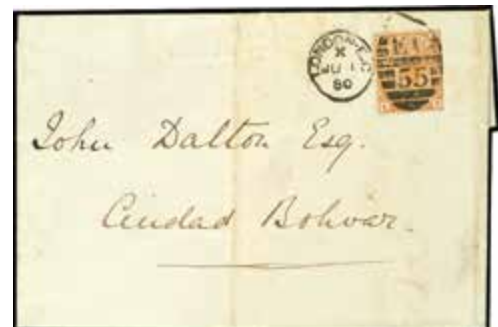 LONDON·E.C
X
JU 1
80
E.C
55
John Dalton Esq.
Ciudad Bolivar.